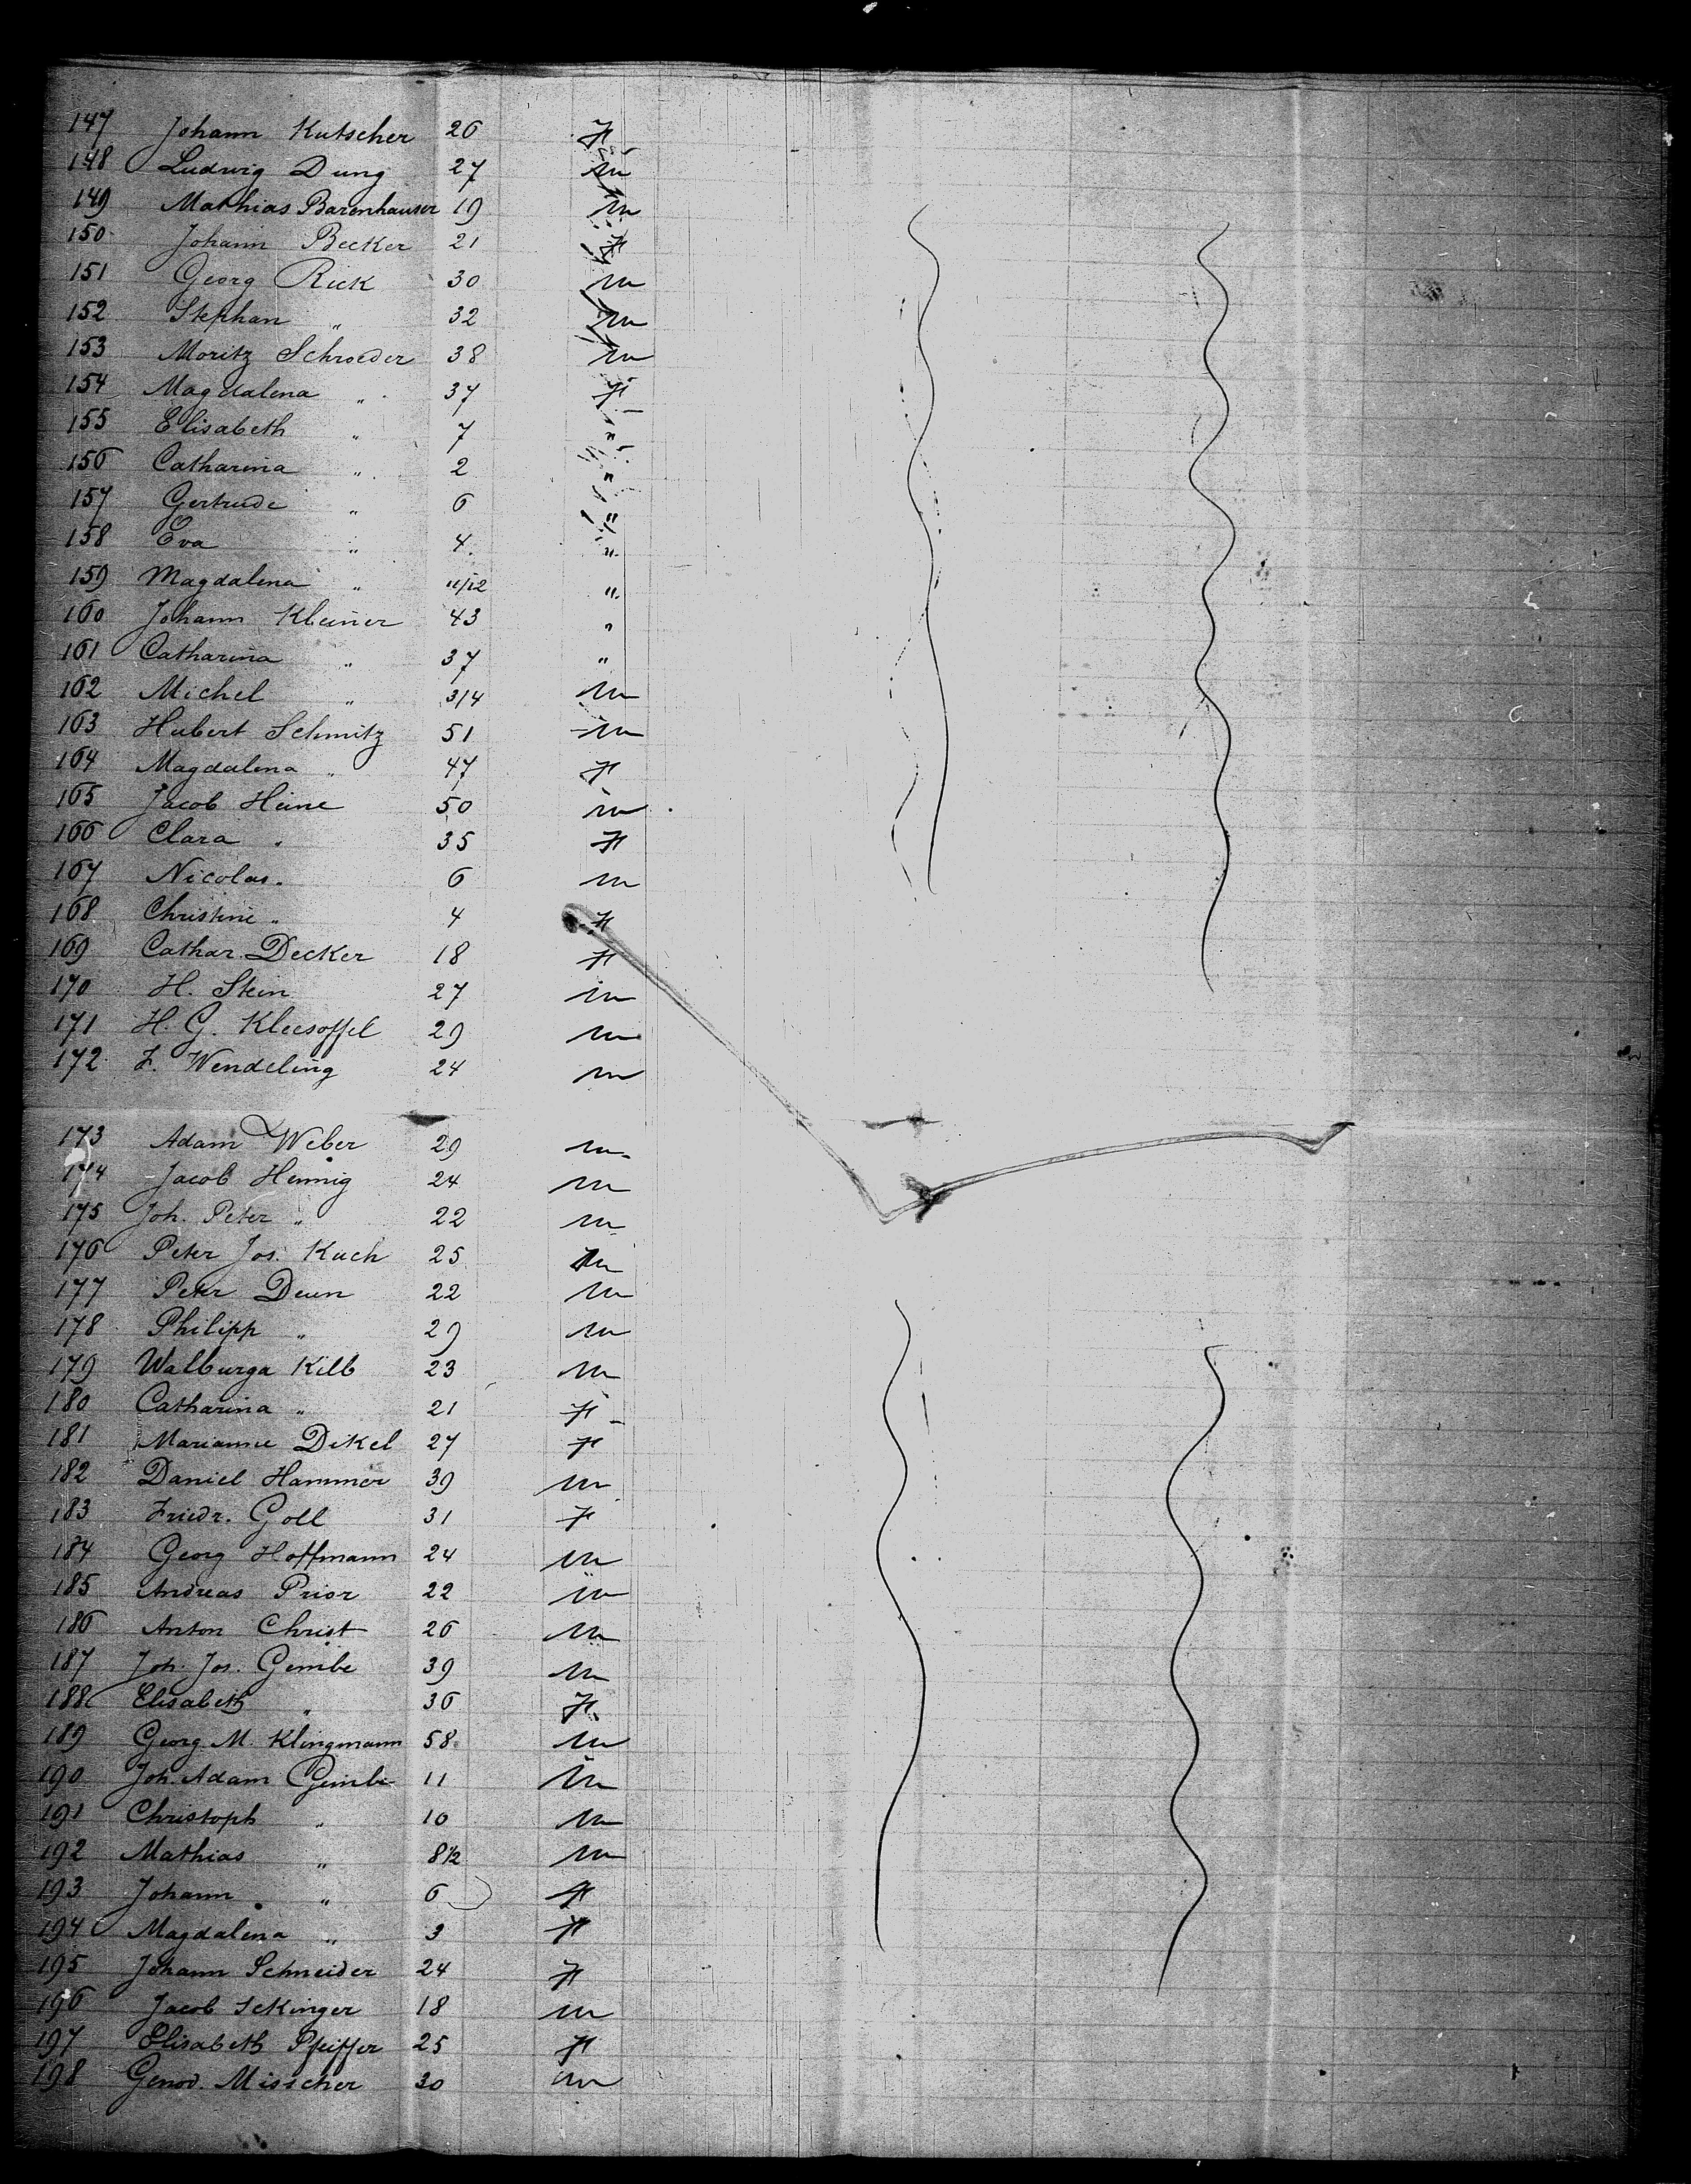 147 Johann Kutscher 26 F
148 Ludwig Dung 27 m
149 Mathias Barenhauser 19 m
150 Johann Becker 21 F
151 Georg Rick 30 m
152 Stephan " 32 m
153 Moritz Schroeder 38 m
154 Magdalena " 37 F
155 Elisabeth " 7 "
156 Catharina " 2 "
157 Gertrude " 6 "
158 Eva " 4 "
159 Magdalena " 11/12 "
160 Johann Kleiner 43 "
161 Catharina " 37 "
162 Michel " 3/4 m
163 Hubert Schmitz 51 m
164 Magdalena " 47 F
165 Jacob Heine 50 m
166 Clara " 35 F
167 Nicolas. 6 m
168 Christine " 4 F
169 Cathar. Decker 18 F
170 H. Stein 27 m
171 H. G. Kleesoffel 29 m
172 F. Wendeling 24 m
173 Adam Weber 29 m
174 Jacob Hennig 24 m
175 Joh. Peter " 22 m
176 Peter Jos. Kuch 25 m
177 Peter Deun 22 m
178 Philipp " 29 m
179 Walburga Kilb 23 m
180 Catharina " 21 F
181 Marianne Dikel 27 F
182 Daniel Hammer 39 m
183 Friedr. Goll 31 F
184 Georg Hoffmann 24 m
185 Andreas Prior 22 m
186 Anton Christ 26 m
187 Joh. Jos. Gimbe 39 m
188 Elisabeth " 36 F
189 Georg M. Klingmann 58 m
190 Joh. Adam Gimbe 11 m
191 Christoph " 10 m
192 Mathias " 8 1/2 m
193 Johann " 6 F
194 Magdalena " 3 F
195 Johann Schneider 24 F
196 Jacob Sckinger 18 m
197 Elisabeth Pfeiffer 25 F
198 Genov. Misscher 30 m